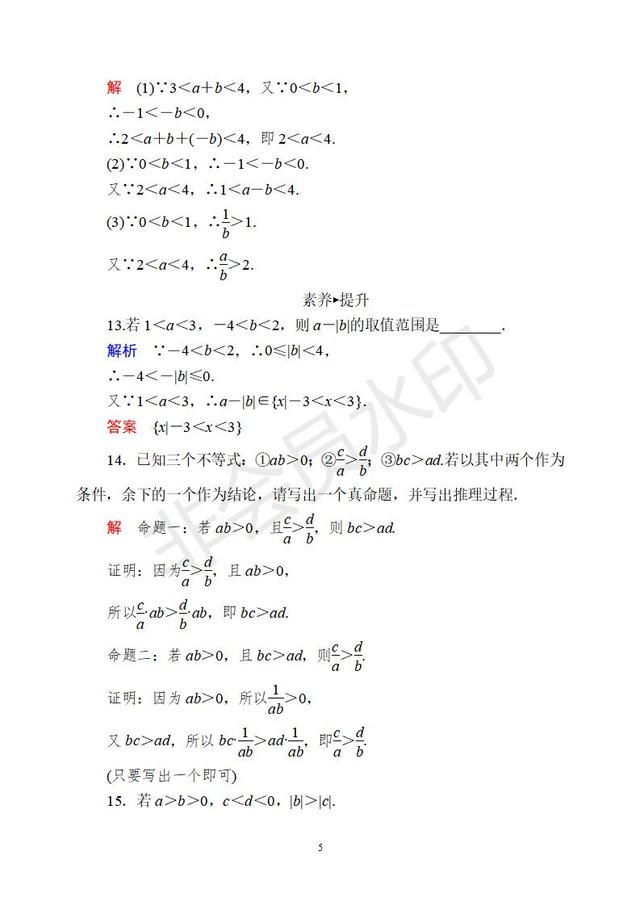 解 (1)∵3<a+b<4，又∵0<b<1，
∴-1<-b<0，
∴2<a+b+(-b)<4，即 2<a<4.
(2)∵0<b<1，∴-1<-b<0.
又∵2<a<4，∴1<a-b<4.
(3)∵0<b<1，∴1/b>1.
又∵2<a<4，∴a/b>2.
素养▸提升
13.若 1<a<3，-4<b<2，则 a-|b|的取值范围是________．
解析 ∵-4<b<2，∴0≤|b|<4，
∴-4<-|b|≤0.
又∵1<a<3，∴a-|b|∈{x|-3<x<3}.
答案 {x|-3<x<3}
14．已知三个不等式：①ab>0；②c/a>d/b；③bc>ad.若以其中两个作为
条件，余下的一个作为结论，请写出一个真命题，并写出推理过程．
解 命题一：若 ab>0，且c/a>d/b，则 bc>ad.
证明：因为c/a>d/b，且 ab>0，
所以c/a·ab>d/b·ab，即 bc>ad.
命题二：若 ab>0，且 bc>ad，则c/a>d/b.
证明：因为 ab>0，所以1/ab>0，
又 bc>ad，所以 bc·1/ab>ad·1/ab，即c/a>d/b.
(只要写出一个即可)
15．若 a>b>0，c<d<0，|b|>|c|.
5
非会员水印